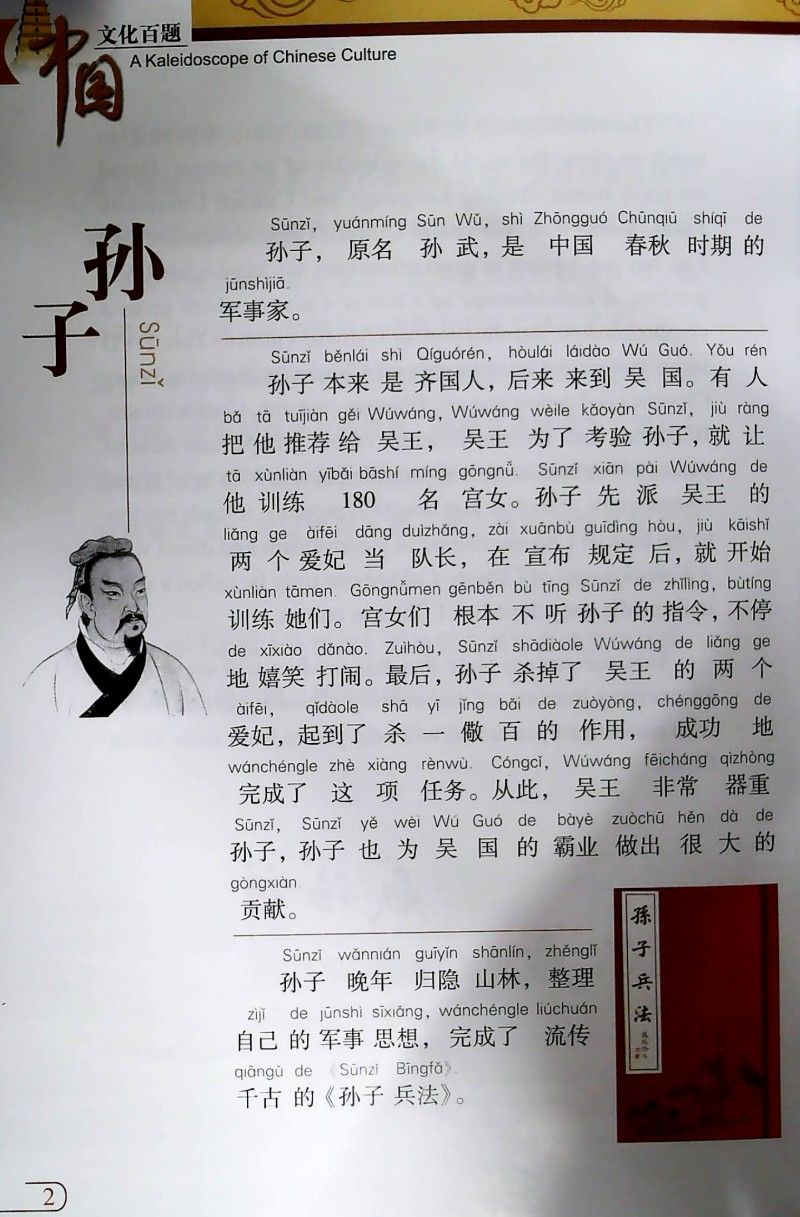 中国
文化百题
A Kaleidoscope of Chinese Culture
孙子
Sūnzǐ
Sūnzǐ, yuánmíng Sūn Wǔ, shì Zhōngguó Chūnqiū shíqī de
孙子，原名 孙 武，是 中国 春秋 时期 的
jūnshìjiā.
军事家。
Sūnzǐ běnlái shì Qíguórén, hòulái láidào Wú Guó. Yǒu rén
孙子 本来 是 齐国人，后来 来到 吴 国。有 人
bǎ tā tuījiàn gěi Wúwáng, Wúwáng wèile kǎoyàn Sūnzǐ, jiù ràng
把 他 推荐 给 吴王， 吴王 为了 考验 孙子，就 让
tā xùnliàn yībǎi bāshí míng gōngnǚ. Sūnzǐ xiān pài Wúwáng de
他 训练 180 名 宫女。孙子 先 派 吴王 的
liǎng ge àifēi dāng duìzhǎng, zài xuānbù guīdìng hòu, jiù kāishǐ
两 个 爱妃 当 队长，在 宣布 规定 后，就 开始
xùnliàn tāmen. Gōngnǚmen gēnběn bù tīng Sūnzǐ de zhǐlìng, bùtíng
训练 她们。宫女们 根本 不 听 孙子 的 指令，不停
de xīxiào dǎnào. Zuìhòu, Sūnzǐ shādiàole Wúwáng de liǎng ge
地 嬉笑 打闹。最后，孙子 杀掉了 吴王 的 两 个
àifēi, qǐdàole shā yī jǐng bǎi de zuòyòng, chénggōng de
爱妃，起到了 杀 一 儆 百 的 作用， 成功 地
wánchéngle zhè xiàng rènwù. Cóngcǐ, Wúwáng fēicháng qìzhòng
完成了 这 项 任务。从此， 吴王 非常 器重
Sūnzǐ, Sūnzǐ yě wèi Wú Guó de bàyè zuòchū hěn dà de
孙子，孙子 也 为 吴 国 的 霸业 做出 很 大 的
gòngxiàn.
贡献。
Sūnzǐ wǎnnián guīyǐn shānlín, zhěnglǐ
孙子 晚年 归隐 山林，整理
zìjǐ de jūnshì sīxiǎng, wánchéngle liúchuán
自己 的 军事 思想，完成了 流传
qiāngǔ de 《Sūnzǐ Bīngfǎ》.
千古 的《孙子 兵法》。
孫子兵法
2